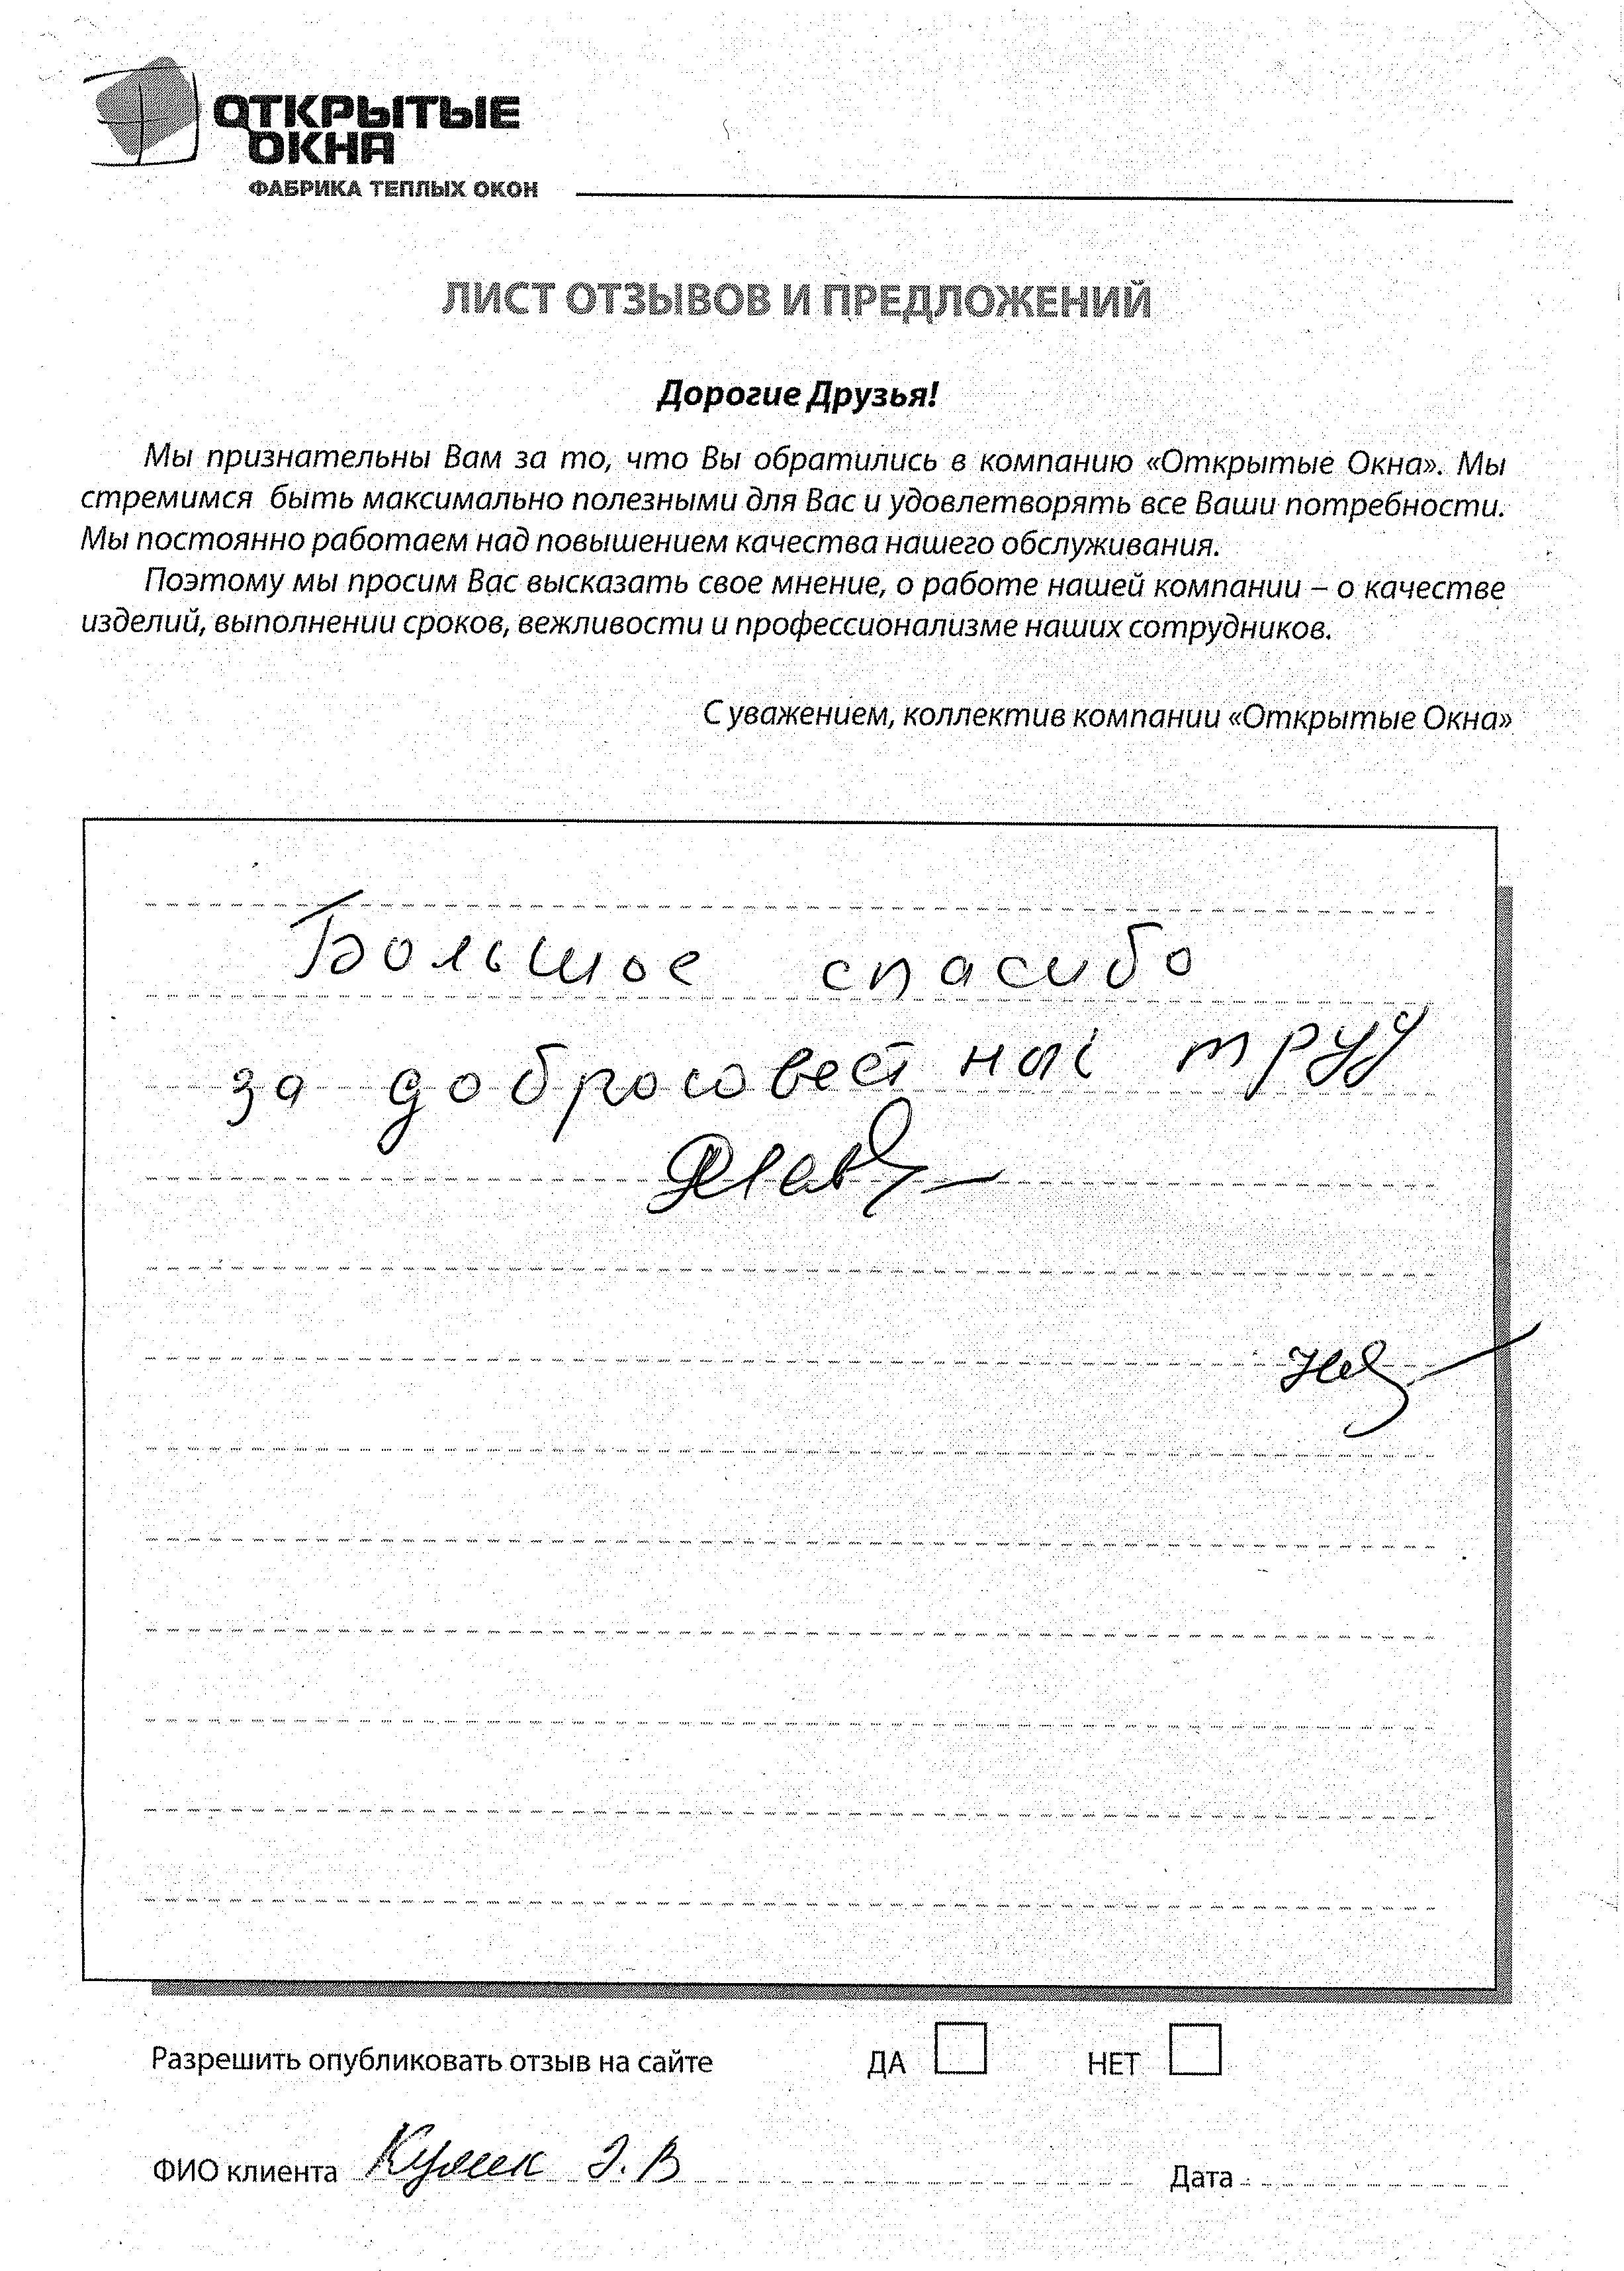 ОТКРЫТЫЕ
ОКНА
ФАБРИКА ТЕПЛЫХ ОКОН
ЛИСТ ОТЗЫВОВ И ПРЕДЛОЖЕНИЙ
Дорогие Друзья!
Мы признательны Вам за то, что Вы обратились в компанию «Открытые Окна». Мы
стремимся быть максимально полезными для Вас и удовлетворять все Ваши потребности.
Мы постоянно работаем над повышением качества нашего обслуживания.
Поэтому мы просим Вас высказать свое мнение, о работе нашей компании – о качестве
изделий, выполнении сроков, вежливости и профессионализме наших сотрудников.
С уважением, коллектив компании «Открытые Окна»
Большое спасибо
за труд
Разрешить опубликовать отзыв на сайте ДА НЕТ
ФИО клиента Дата